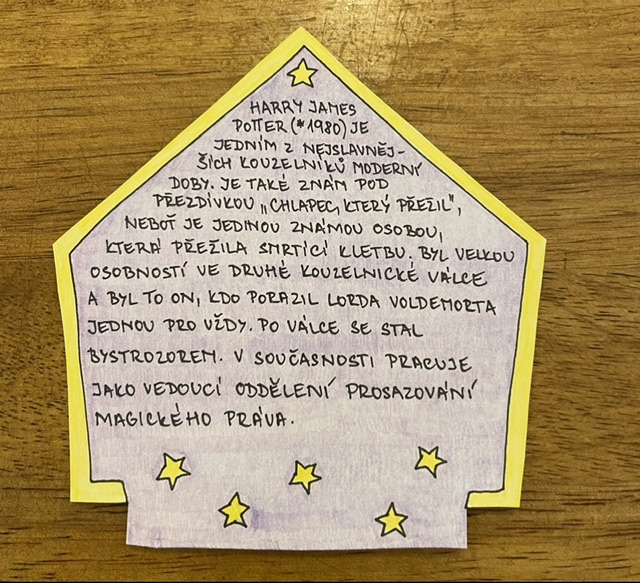 HARRY JAMES
POTTER (*1980) JE
JEDNÍM Z NEJSLAVNĚJ-
ŠÍCH KOUZELNÍKŮ MODERNÍ
DOBY. JE TAKÉ ZNÁM POD
PŘEZDÍVKOU „CHLAPEC, KTERÝ PŘEŽIL",
NEBOŤ JE JEDINOU ZNÁMOU OSOBOU,
KTERÁ PŘEŽILA SMRTÍCÍ KLETBU. BYL VELKOU
OSOBNOSTÍ VE DRUHÉ KOUZELNICKÉ VÁLCE
A BYL TO ON, KDO PORAZIL LORDA VOLDEMORTA
JEDNOU PRO VŽDY. PO VÁLCE SE STAL
BYSTROZOREM. V SOUČASNOSTI PRACUJE
JAKO VEDOUCÍ ODDĚLENÍ PROSAZOVÁNÍ
MAGICKÉHO PRÁVA.